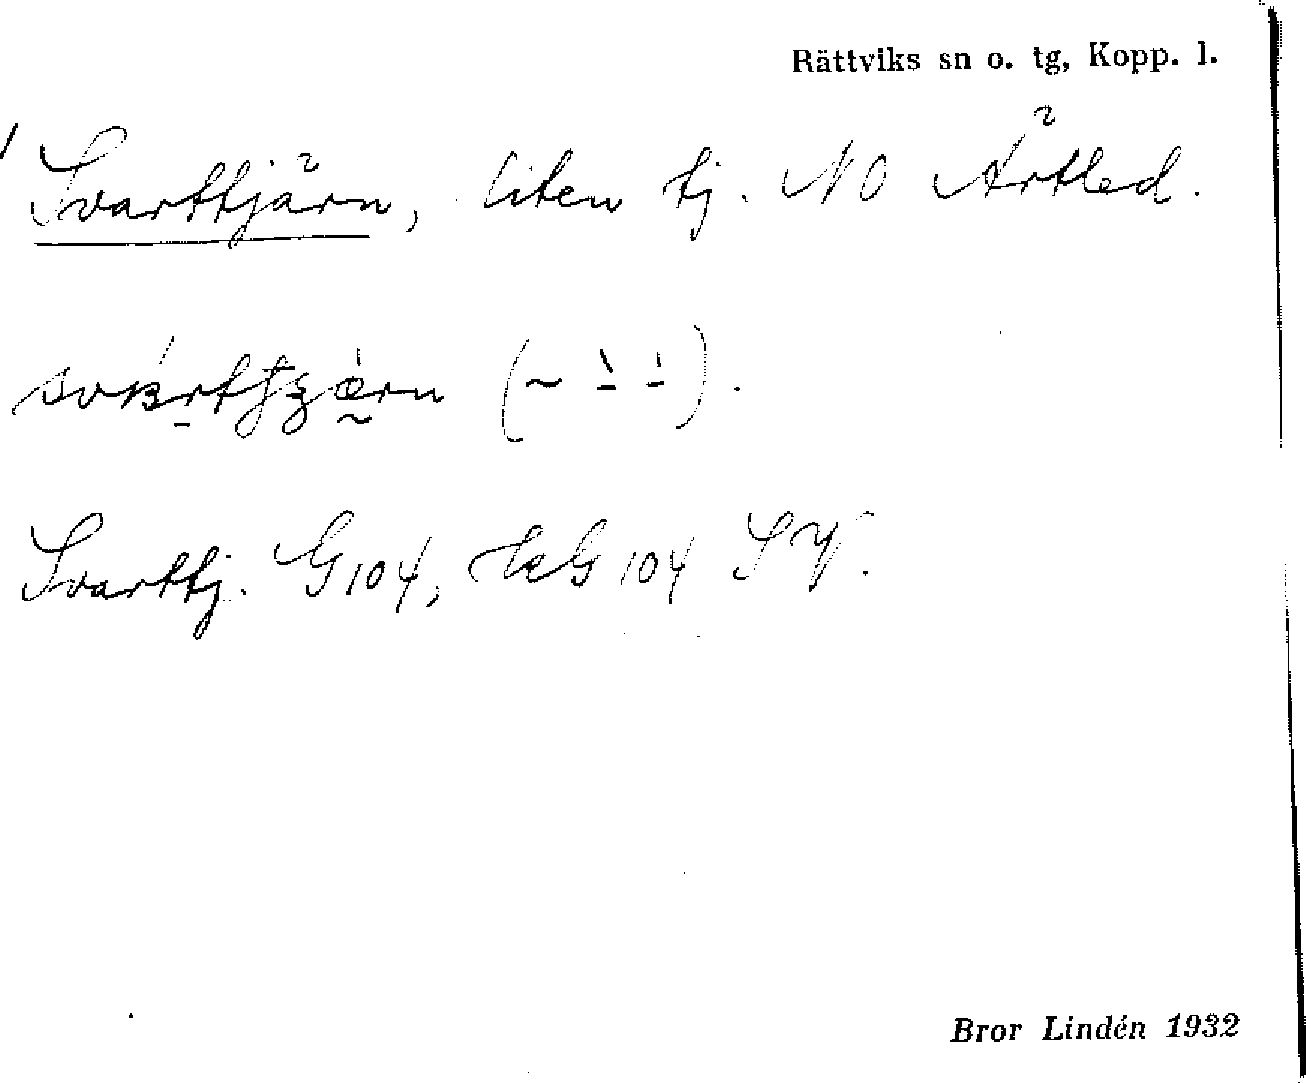 Rättviks sn o. tg, Kopp. l.
Svarttjärn, liten tj. NO Ärtled.
Svarttj. G104, HkG104 SV.
Bror Lindén 1932